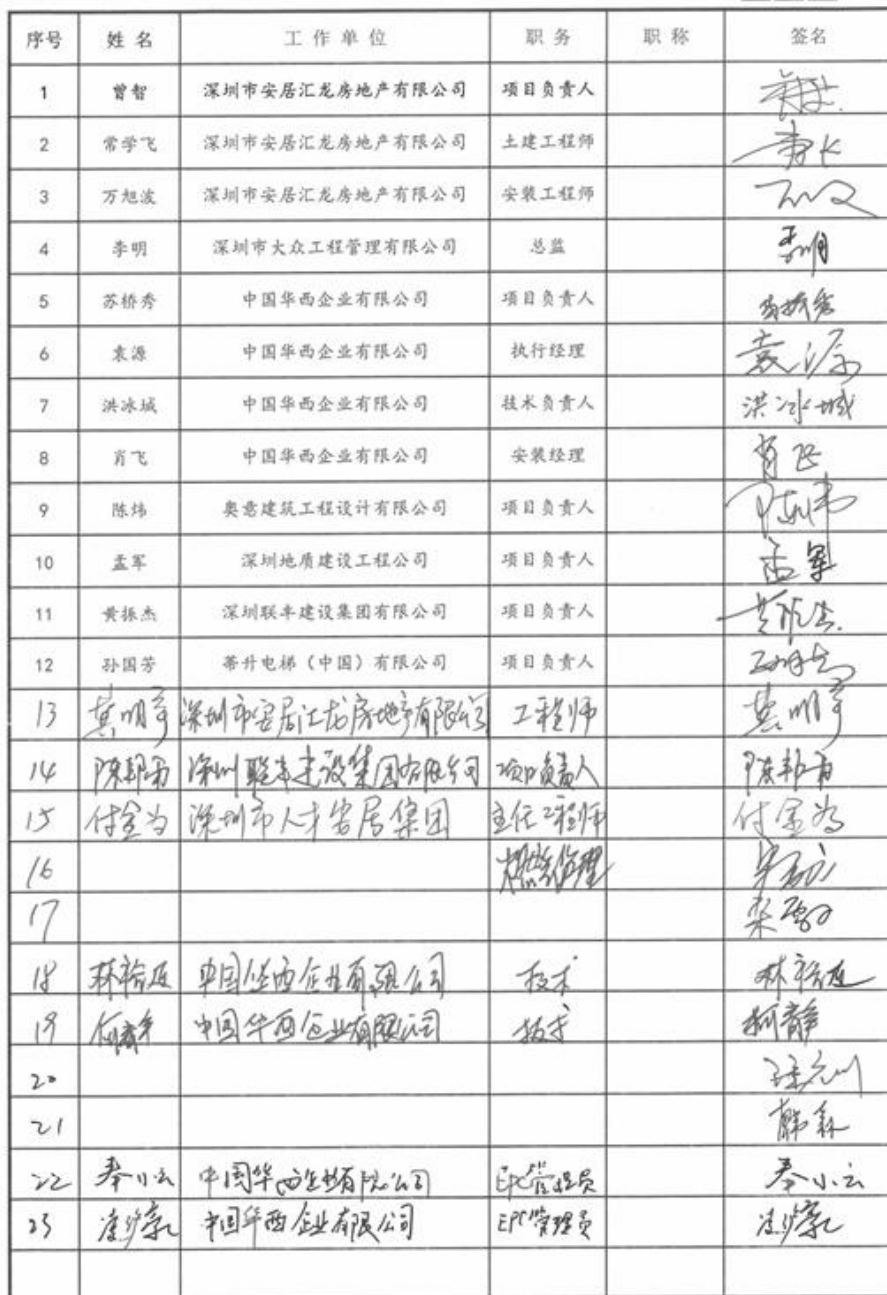 序号 姓名 工作单位 职务 职称 签名
1 曾智 深圳市安居汇龙房地产有限公司 项目负责人
2 常学飞 深圳市安居汇龙房地产有限公司 土建工程师
3 万旭波 深圳市安居汇龙房地产有限公司 安装工程师
4 李明 深圳市大众工程管理有限公司 总监 李明
5 苏桥秀 中国华西企业有限公司 项目负责人 苏桥秀
6 袁源 中国华西企业有限公司 执行经理 袁源
7 洪冰城 中国华西企业有限公司 技术负责人 洪冰城
8 肖飞 中国华西企业有限公司 安装经理 肖飞
9 陈炜 奥意建筑工程设计有限公司 项目负责人 陈炜
10 孟军 深圳地质建设工程公司 项目负责人 孟军
11 黄振杰 深圳联丰建设集团有限公司 项目负责人 黄振杰
12 孙国芳 蒂升电梯（中国）有限公司 项目负责人 孙国芳
13 深圳市安居汇龙房地产有限公司 工程师
14 陈邦勇 深圳联丰建设集团有限公司 项目负责人 陈邦勇
15 付金为 深圳市人才安居集团 主任工程师 付金为
16
17
18 林裕延 中国华西企业有限公司 技术 林裕延
19 何静 中国华西企业有限公司 技术 柯静
20
21 韩森
22 秦小云 中国华西企业有限公司 EPC管理员 秦小云
23 中国华西企业有限公司 EPC管理员